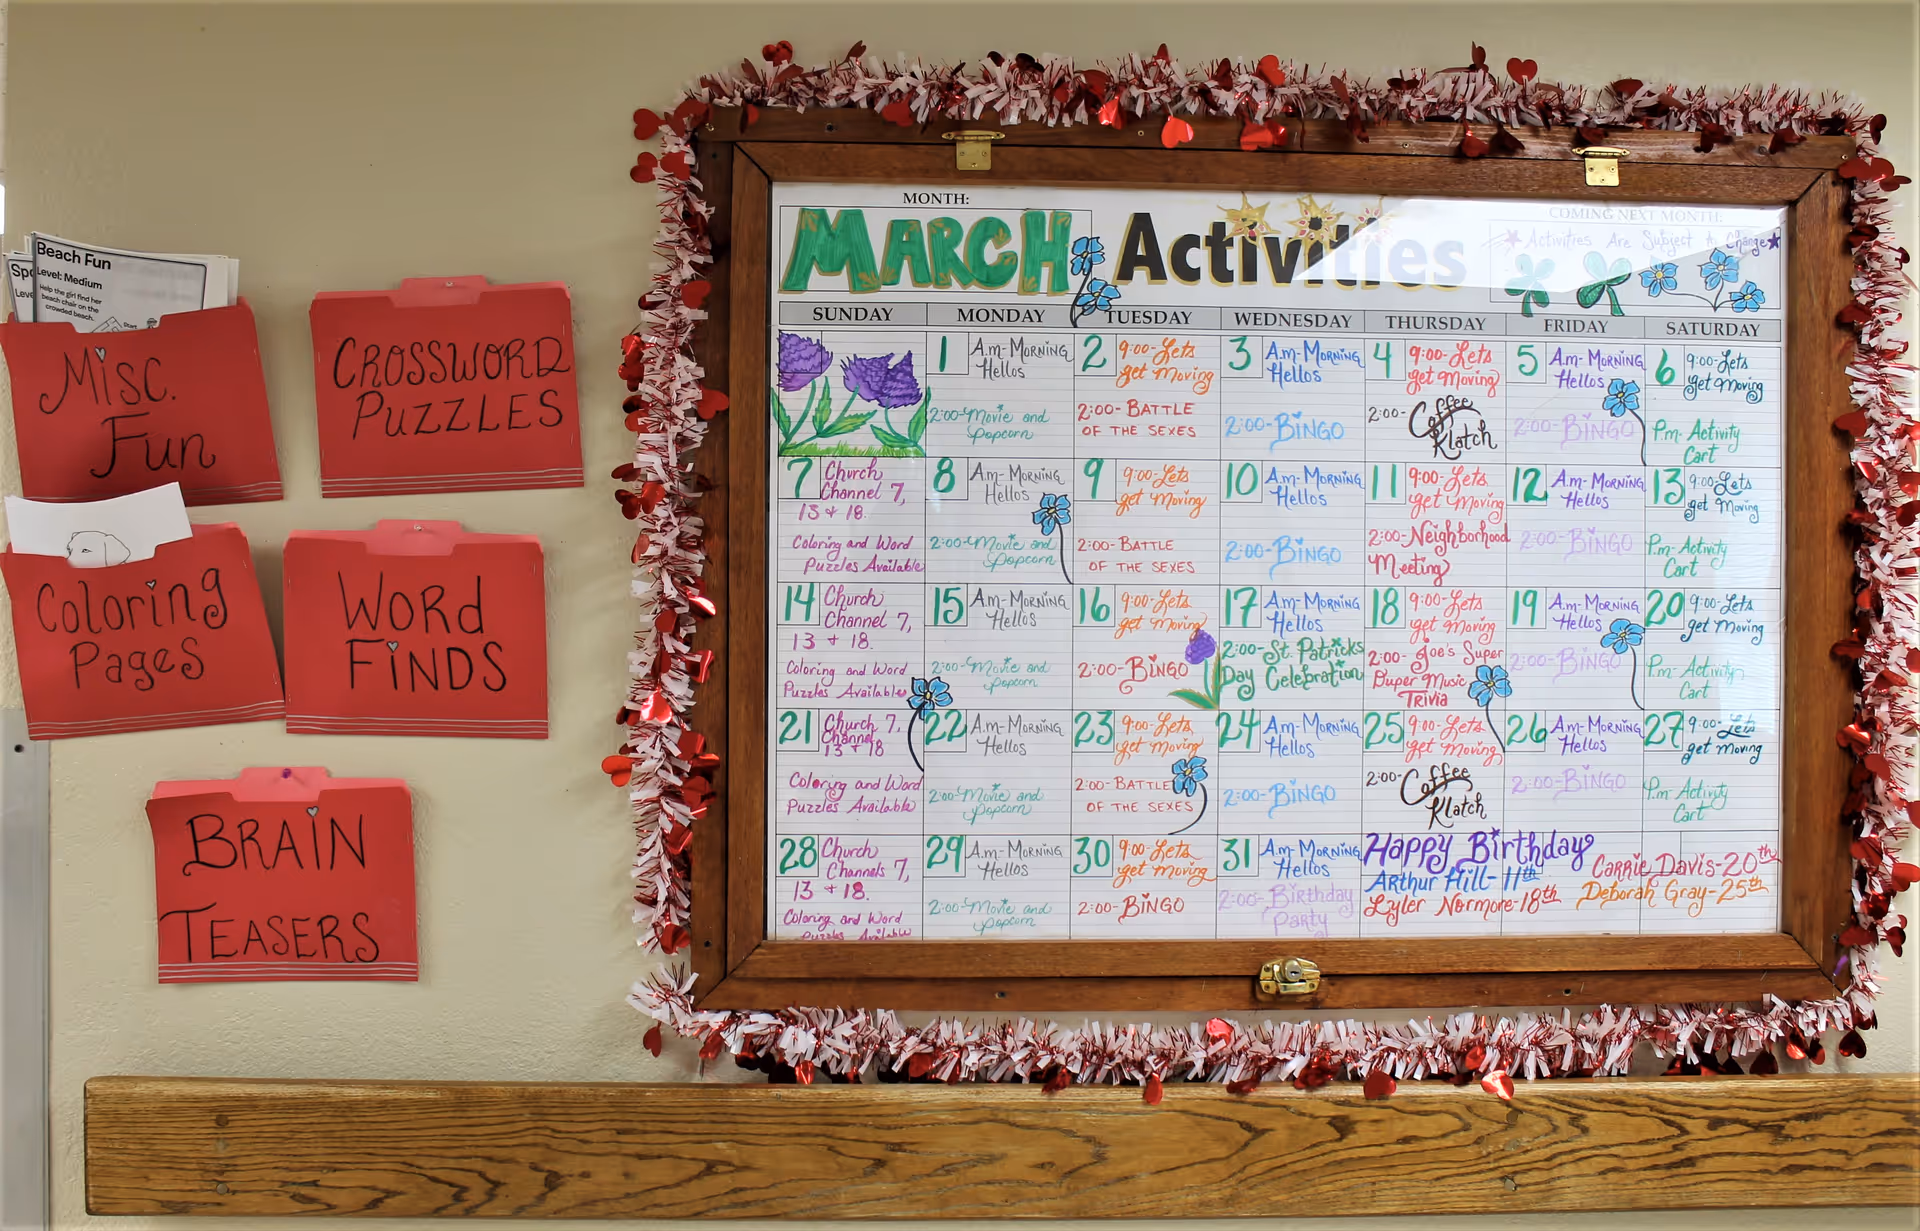 Beach Fun
Level: Medium
Help the girl find her
beach chair on the
crowded beach.
Start
Misc.
Fun
CROSSWORD
PUZZLES
Coloring
Pages
WORD
FINDS
BRAIN
TEASERS
MONTH:
MARCH Activities
COMING NEXT MONTH:
Activities Are Subject to Change
SUNDAY MONDAY TUESDAY WEDNESDAY THURSDAY FRIDAY SATURDAY
1 A.m-MORNING
Hellos
2:00-Movie and
Popcorn
2 9:00-Lets
get moving
2:00-BATTLE
OF THE SEXES
3 A.m-MORNING
Hellos
2:00-BINGO
4 9:00-Lets
get moving
2:00-Coffee
Klatch
5 A.m-MORNING
Hellos
2:00-BINGO
6 9:00-Lets
get moving
P.m-Activity
Cart
7 Church
Channel 7,
13 + 18.
Coloring and Word
Puzzles Available
8 A.m-MORNING
Hellos
2:00-Movie and
Popcorn
9 9:00-Lets
get moving
2:00-BATTLE
OF THE SEXES
10 A.m-MORNING
Hellos
2:00-BINGO
11 9:00-Lets
get moving
2:00-Neighborhood
Meeting
12 A.m-MORNING
Hellos
2:00-BINGO
13 9:00-Lets
get moving
P.m-Activity
Cart
14 Church
Channel 7,
13 + 18.
Coloring and Word
Puzzles Available
15 A.m-MORNING
Hellos
2:00-Movie and
Popcorn
16 9:00-Lets
get moving
2:00-BINGO
17 A.m-MORNING
Hellos
2:00-St. Patricks
Day Celebration
18 9:00-Lets
get moving
2:00-Joe's Super
Duper Music
Trivia
19 A.m-MORNING
Hellos
2:00-BINGO
20 9:00-Lets
get moving
P.m-Activity
Cart
21 Church 7,
Channel
13 + 18
Coloring and Word
Puzzles Available
22 A.m-MORNING
Hellos
2:00-Movie and
Popcorn
23 9:00-Lets
get moving
2:00-BATTLE
OF THE SEXES
24 A.m-MORNING
Hellos
2:00-BINGO
25 9:00-Lets
get moving
2:00-Coffee
Klatch
26 A.m-MORNING
Hellos
2:00-BINGO
27 9:00-Lets
get moving
P.m-Activity
Cart
28 Church
Channels 7,
13 + 18.
Coloring and Word
Puzzles Available
29 A.m-MORNING
Hellos
2:00-Movie and
Popcorn
30 9:00-Lets
get moving
2:00-BINGO
31 A.m-MORNING
Hellos
2:00-Birthday
Party
Happy Birthday
Arthur Hill-11th
Lyler Normore-18th
Carrie Davis-20th
Deborah Gray-25th